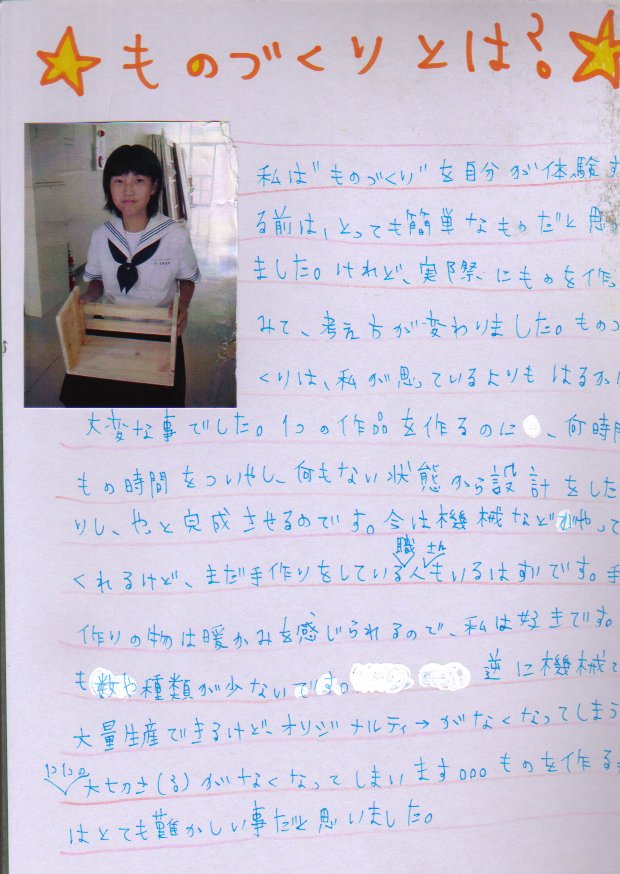 ものづくりとは?。
私は"ものづくり"を自分が体験す
る前は、とっても簡単なものだと思
ました。けれど、実際にものを作
みて、考え方が変わりました。もの
くりは、私が思っているよりもはるか
大変な事でした。1つの作品を作るのに、何時間
もの時間をついやし、何もない状態から設計をした
りし、やっと完成させるのです。今は機械などがやって
職
くれるけど、まだ手作りをしている人もいるはずです。手
作りの物は暖かみを感じられるので、私は好きです。
も数や種類が少ないです。逆に機械で
大量生産できるけど、オリジナルティーがなくなってしまう
1つ1つの
大切さ(る)がなくなってしまいます。。。ものを作る
はとても難かしい事だと思いました。